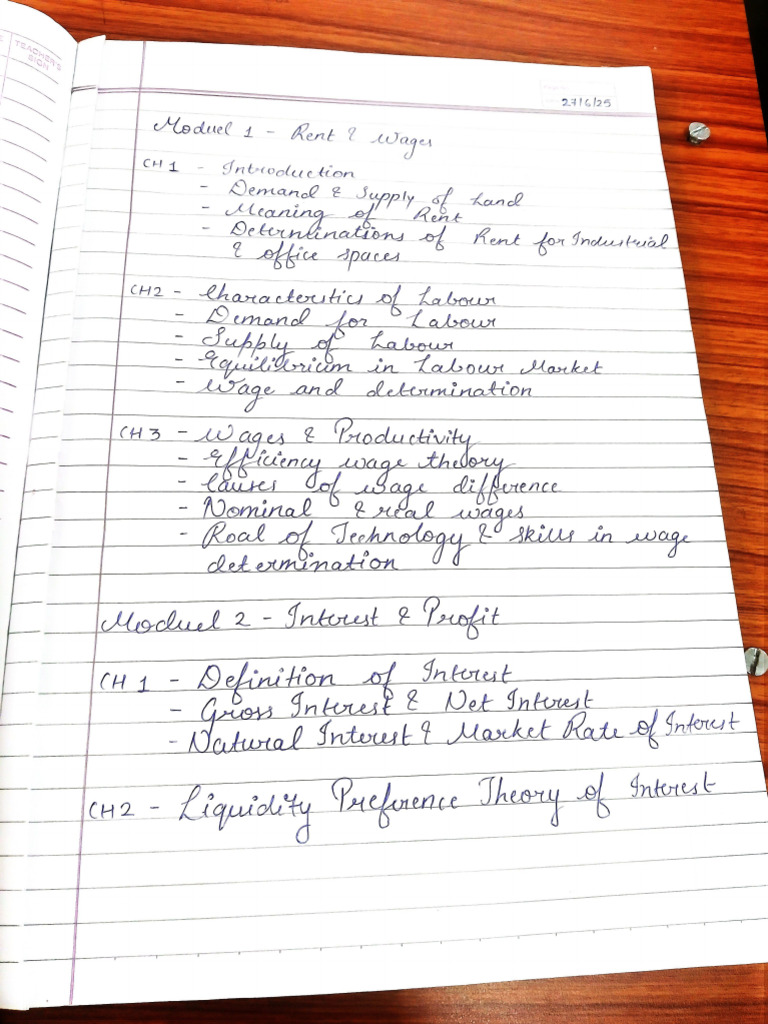 TEACHER'S
SIGN
27/6/25
Moduel 1 - Rent & Wages
CH 1 - Introduction
- Demand & Supply of Land
- Meaning of Rent
- Deternlinations of Rent for Industrial
& office spaces
CH2 - Characterstics of Labour
- Demand for Labour
- Supply of Labour
- Equilibrium in Labour Market
- Wage and determination
CH 3 - Wages & Productivity
- Efficiency wage theory
- Causes of wage difference
- Nominal & real wages
- Roal of Technology & skills in wage
determination
Moduel 2 - Interest & Profit
CH 1 - Definition of Interest
- Gross Interest & Net Interest
- Natural Interest & Market Rate of Interest
CH2 - Liquidity Preference Theory of Interest